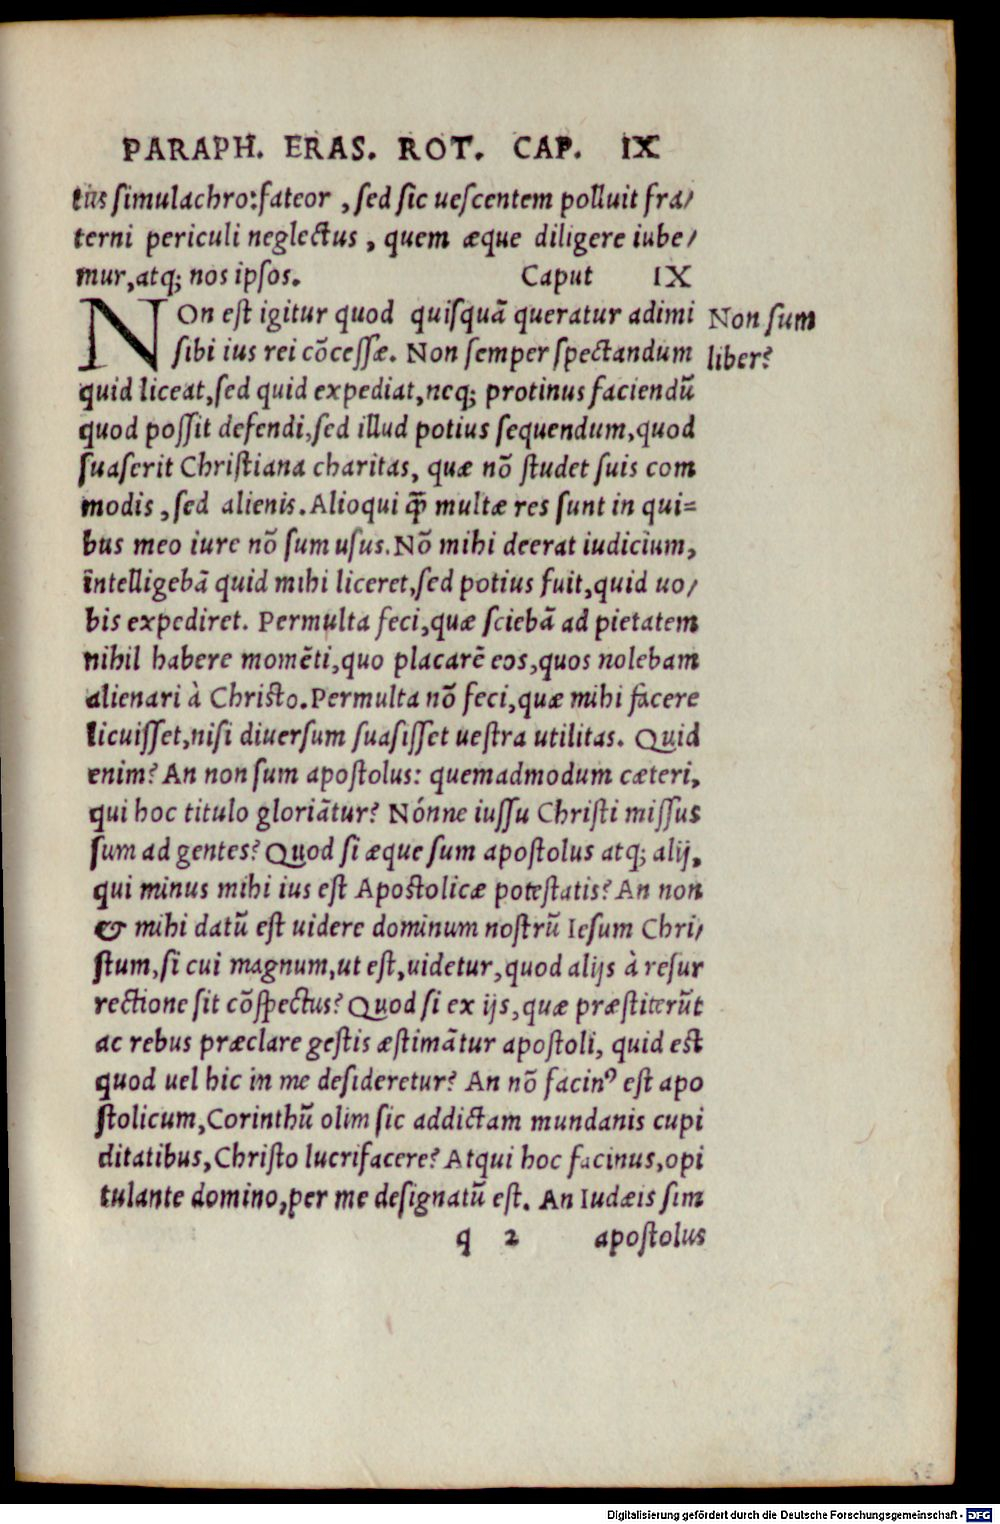 PARAPH. ERAS. ROT. CAP. IX
tus simulachro: fateor, sed sic uescentem polluit fra/
terni periculi neglectus, quem æque diligere iube/
mur, atq; nos ipsos. Caput IX
NOn est igitur quod quisquã queratur adimi
sibi ius rei cõcessæ. Non semper spectandum
quid liceat, sed quid expediat, neq; protinus faciendũ
quod possit defendi, sed illud potius sequendum, quod
suaserit Christiana charitas, quæ nõ studet suis com
modis, sed alienis. Alioqui q̃ multæ res sunt in qui=
bus meo iure nõ sum usus. Nõ mihi deerat iudicium,
intelligebã quid mihi liceret, sed potius fuit, quid uo/
bis expediret. Permulta feci, quæ sciebã ad pietatem
nihil habere momẽti, quo placarẽ eos, quos nolebam
alienari à Christo. Permulta nõ feci, quæ mihi facere
licuisset, nisi diuersum suasisset uestra utilitas. Quid
enim? An non sum apostolus: quemadmodum cæteri,
qui hoc titulo gloriãtur? Nónne iussu Christi missus
sum ad gentes? Quod si æque sum apostolus atq; alij,
qui minus mihi ius est Apostolicæ potestatis? An non
& mihi datũ est uidere dominum nostrũ Iesum Chri/
stum, si cui magnum, ut est, uidetur, quod alijs à resur
rectione sit cõspectus? Quod si ex ijs, quæ præstiterũt
ac rebus præclare gestis æstimãtur apostoli, quid est
quod uel hic in me desideretur? An nõ facinꝰ est apo
stolicum, Corinthũ olim sic addictam mundanis cupi
ditatibus, Christo lucrifacere? Atqui hoc facinus, opi
tulante domino, per me designatũ est. An Iudæis sim
q 2 apostolus
Non sum
liber?
Digitalisierung gefördert durch die Deutsche Forschungsgemeinschaft - DFG